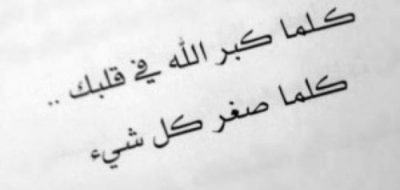 كلما كبر الله في قلبك ..
كلما صغر كل شيء